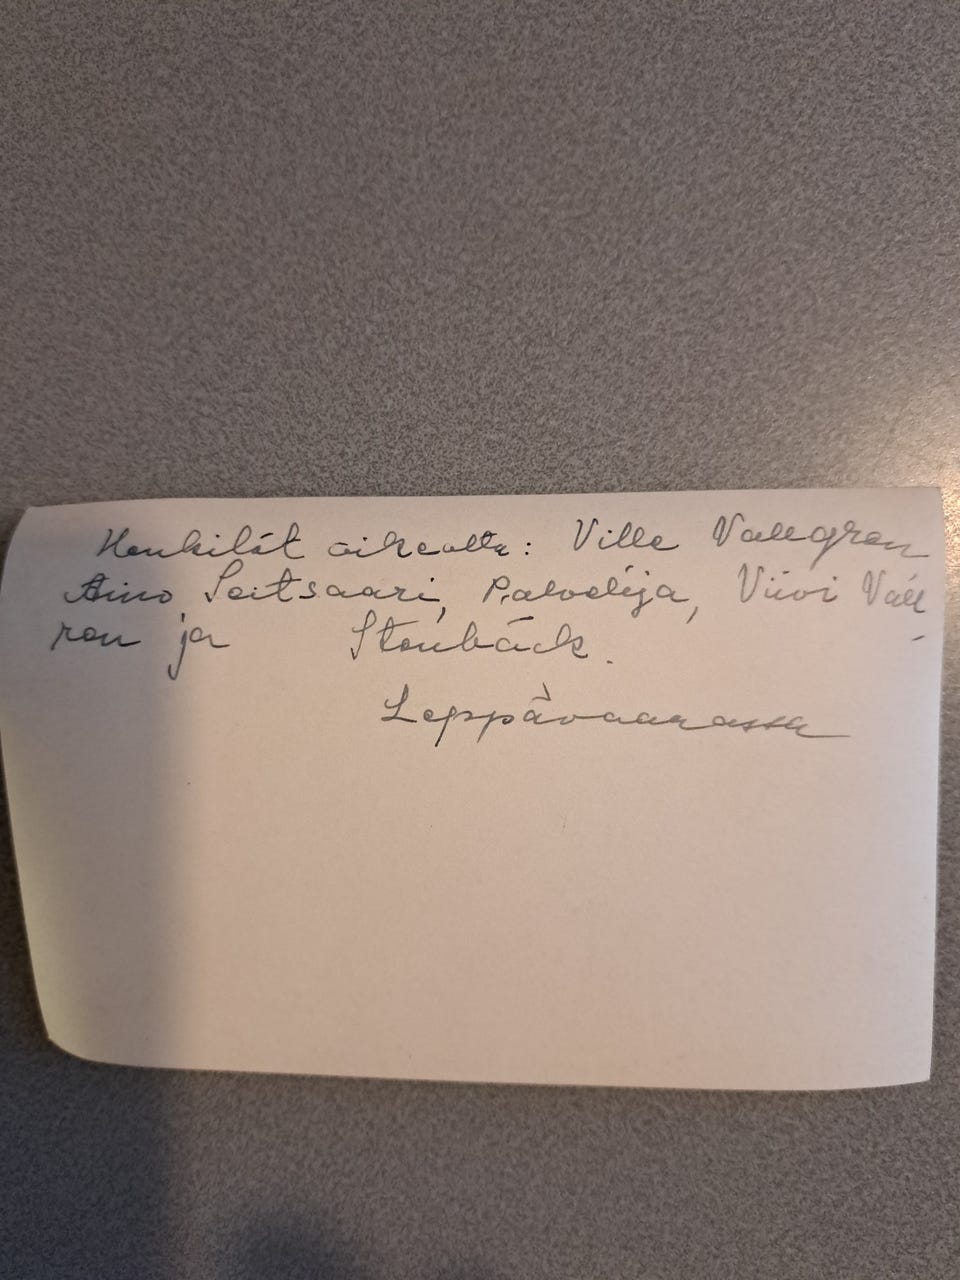 Henkilöt oikealta: Ville Vallgren
Aino Seitsaari, Palvelija, Viivi Vall
ren ja Stenbäck.
Leppävaarassa